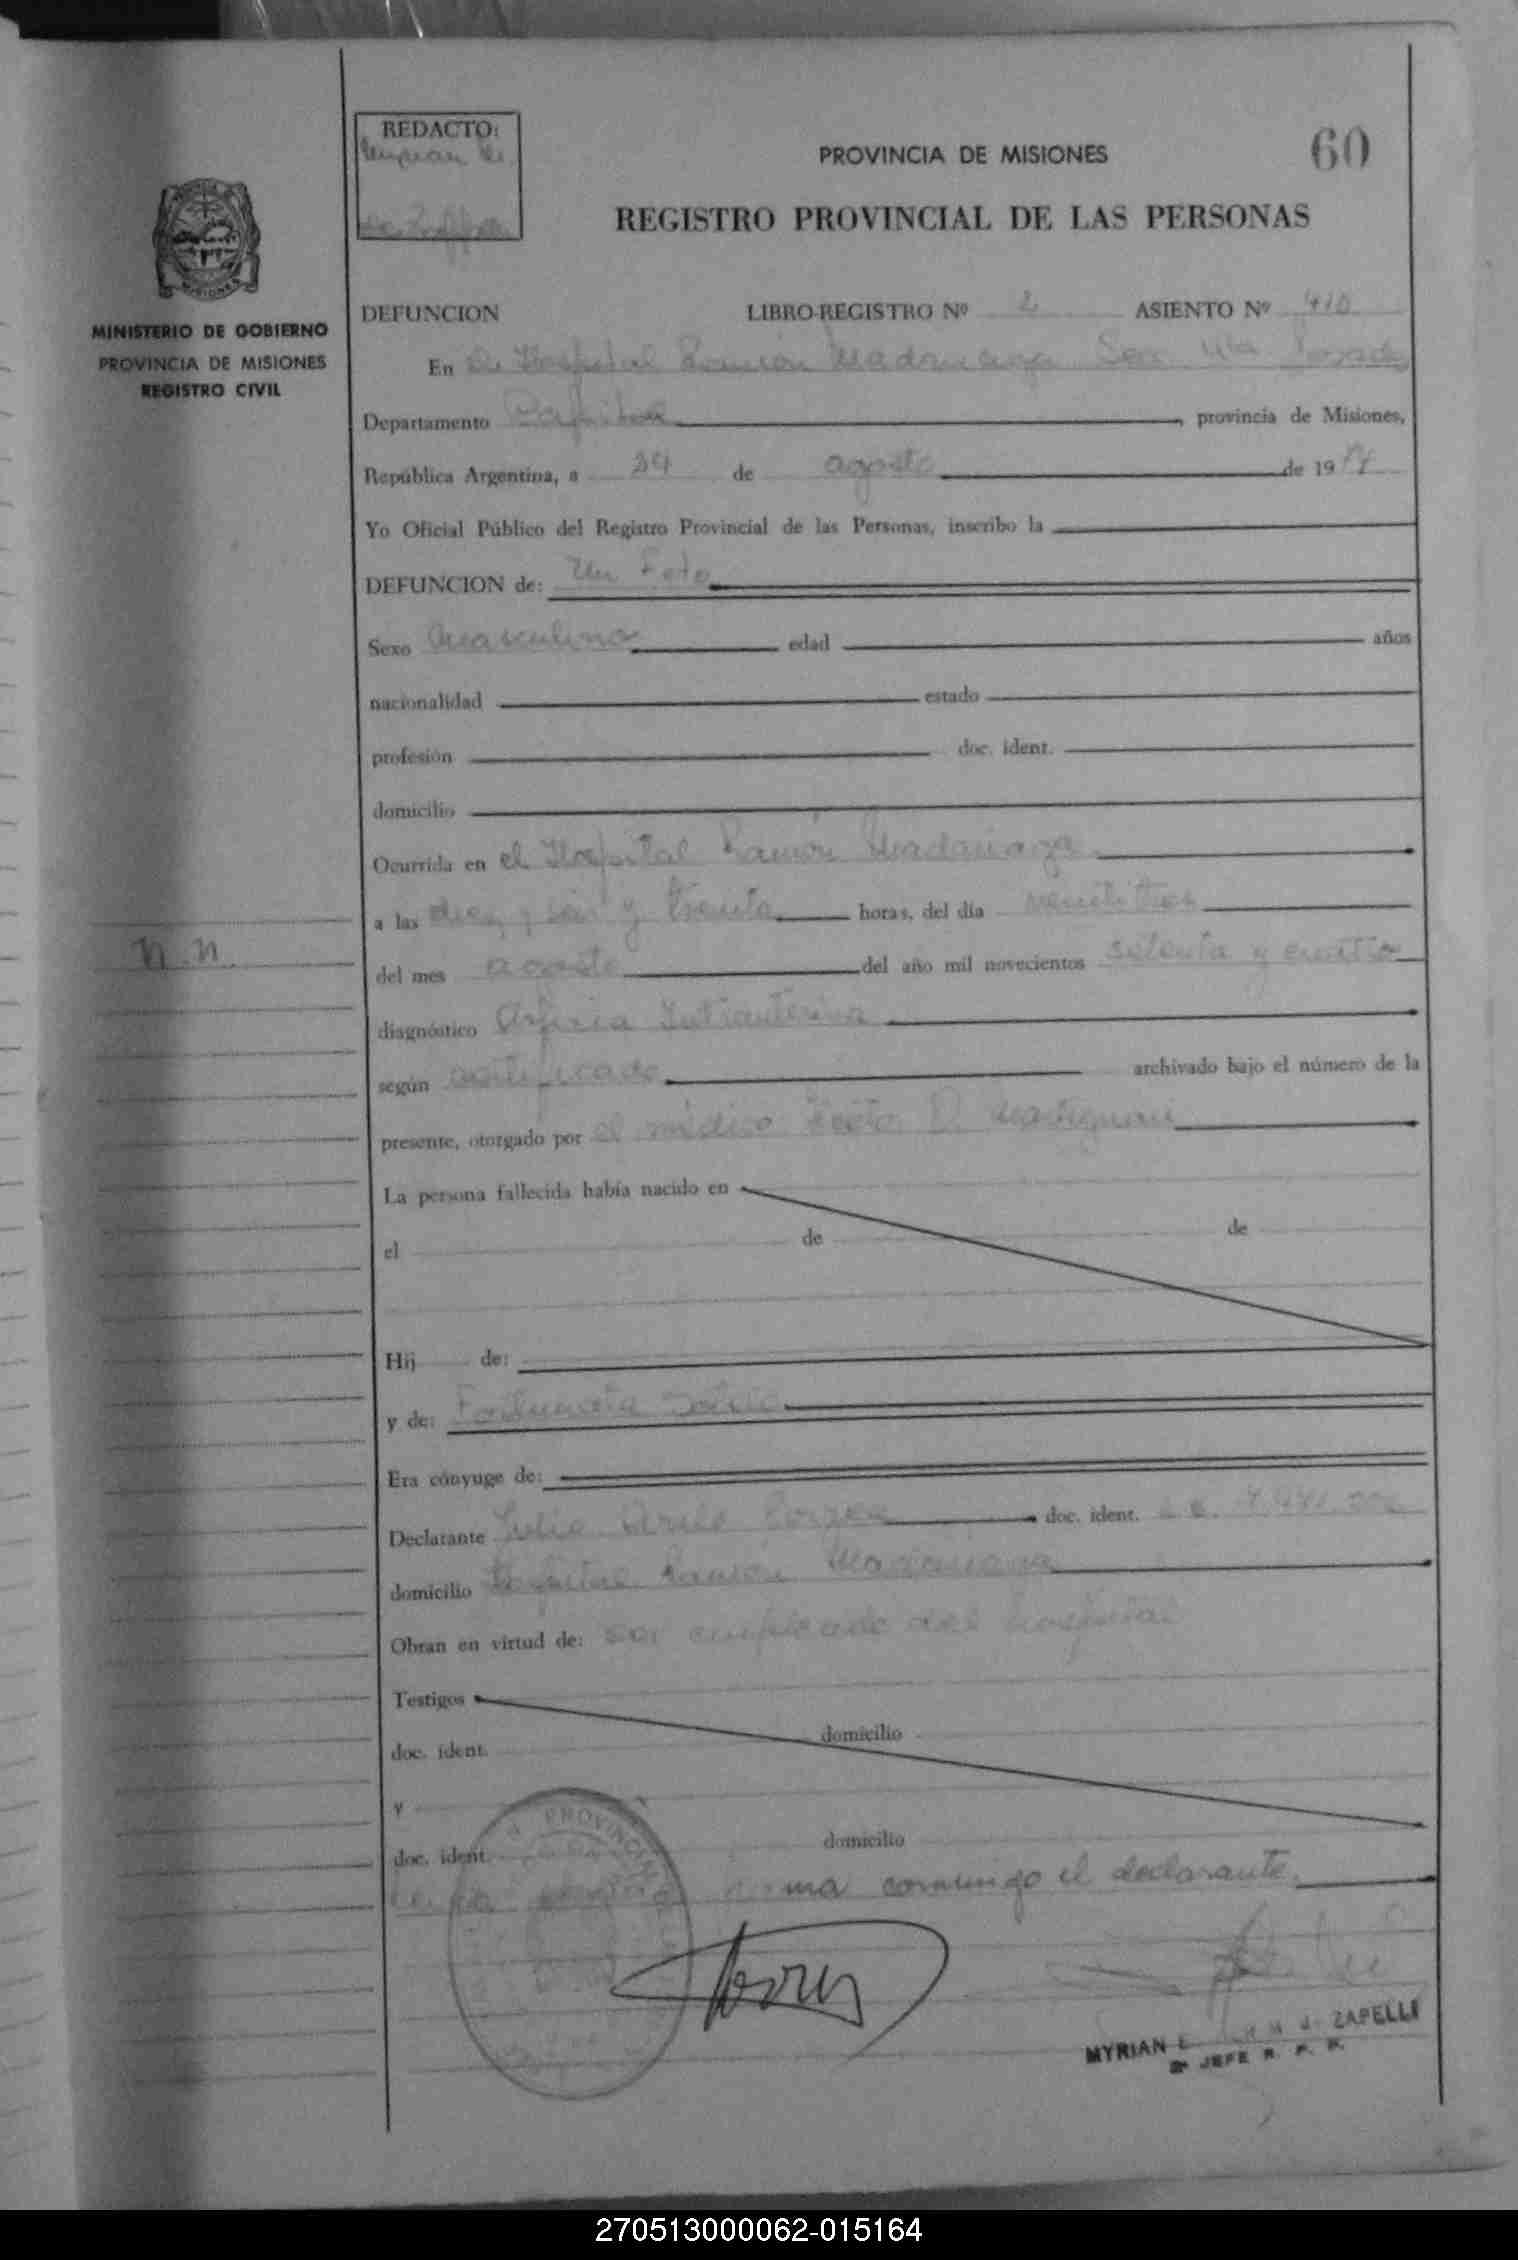 REDACTO:
PROVINCIA DE MISIONES
60
REGISTRO PROVINCIAL DE LAS PERSONAS
MINISTERIO DE GOBIERNO
PROVINCIA DE MISIONES
REGISTRO CIVIL
DEFUNCION LIBRO-REGISTRO Nº 2 ASIENTO Nº 410
En el Hospital Ramón Madariaga Sec 4ta Posadas
Departamento Capital, provincia de Misiones,
República Argentina, a 24 de agosto de 1974
Yo Oficial Público del Registro Provincial de las Personas, inscribo la
DEFUNCION de: Un Feto
Sexo Masculino edad años
nacionalidad estado
profesión doc. ident.
domicilio
Ocurrida en el Hospital Ramón Madariaga
a las diez y seis y treinta horas, del día veintitres
n.n.
del mes agosto del año mil novecientos setenta y cuatro
diagnóstico Asfixia Intrauterina
según certificado archivado bajo el número de la
presente, otorgado por el médico
La persona fallecida había nacido en
el de de
Hij de:
y de: Fortunata Sotelo
Era cónyuge de:
Declarante Julio doc. ident.
domicilio Hospital Ramón Madariaga
Obran en virtud de: ser empleado del hospital
Testigos
doc. ident. domicilio
y
doc. ident. domicilio
Leida firma conmigo el declarante.
PROVINCIA
MYRIAN ZAPELLI
JEFE R. P. P.
270513000062-015164